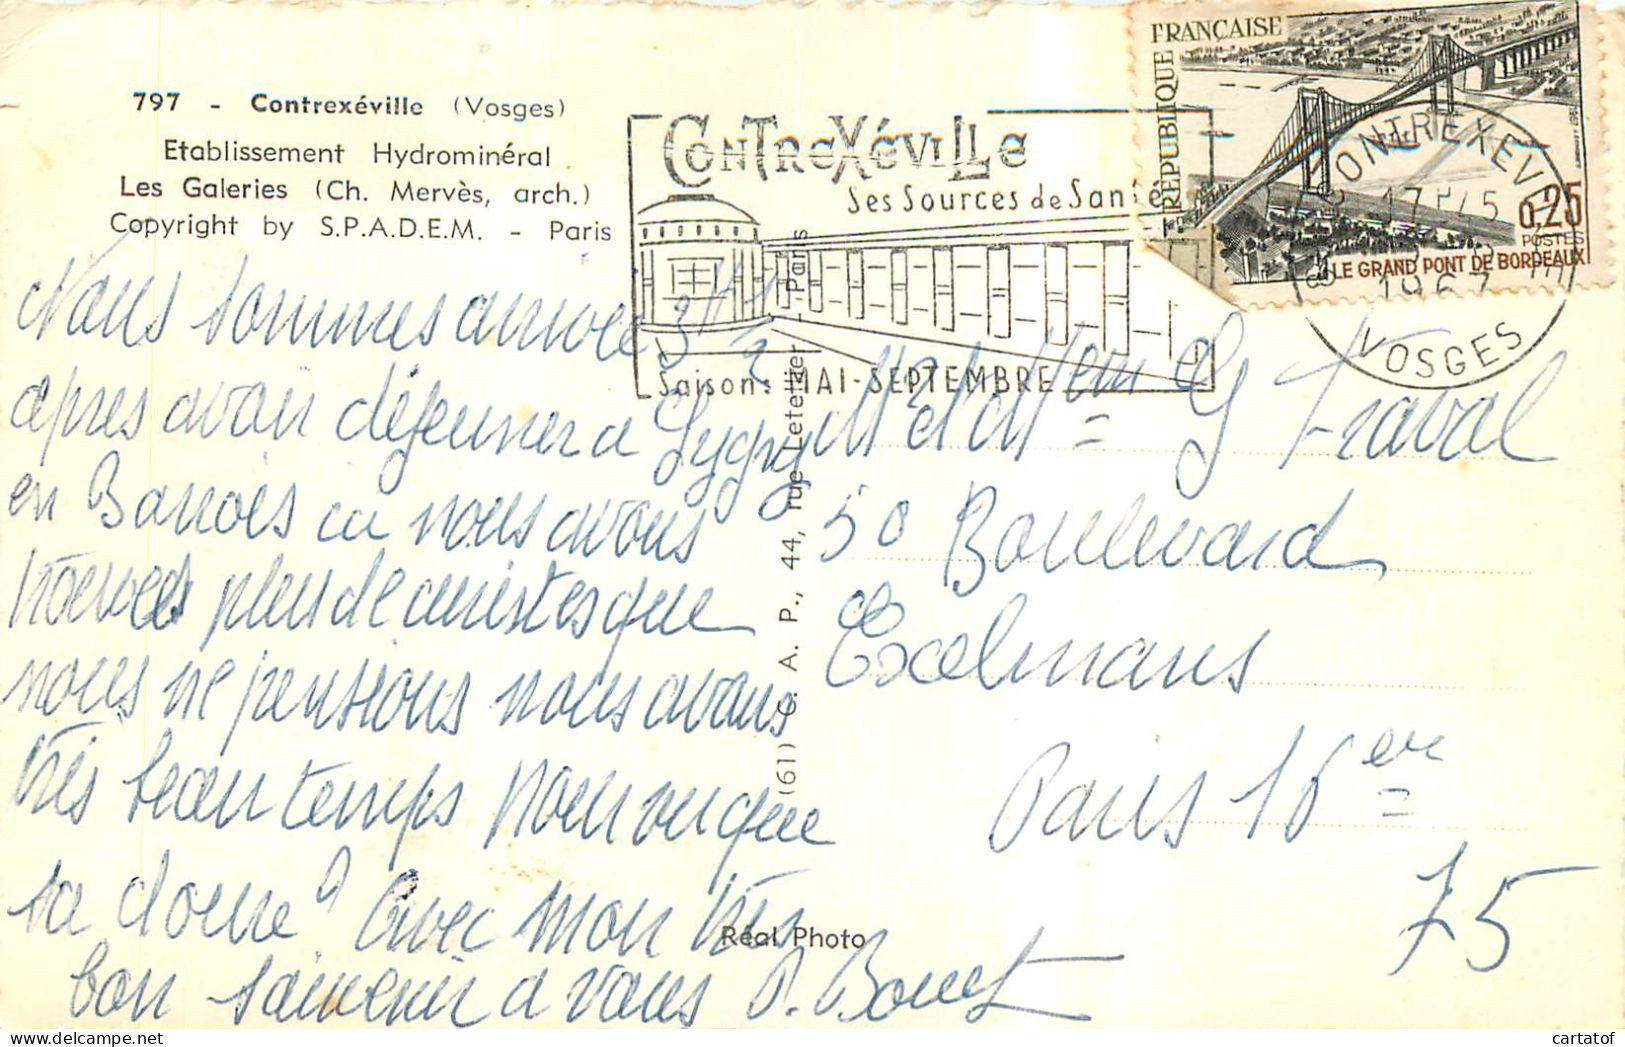 797 - Contrexéville (Vosges)
Etablissement Hydrominéral
Les Galeries (Ch. Mervès, arch.)
Copyright by S.P.A.D.E.M. - Paris
CONTREXÉVILLE
Ses Sources de Santé
Saison: MAI-SEPTEMBRE
RÉPUBLIQUE FRANÇAISE
0,25
POSTES
LE GRAND PONT DE BORDEAUX
CONTREXEVI
17H45
1967
VOSGES
Nous sommes arrivés 3H 1/2
apres avoir déjeuner a
en Barrois nous avons
trouvés plus de curistes que
nous ne pensions nous avons
très beau temps pourvu que
sa dure? avec mon très
bon souvenir a vous P. Bouet
(61) C. A. P., 44, rue Letellier - Paris
Réal Photo
M et M G Traval
50 Boulevard
Exelmans
Paris 16 er
75
cartatof